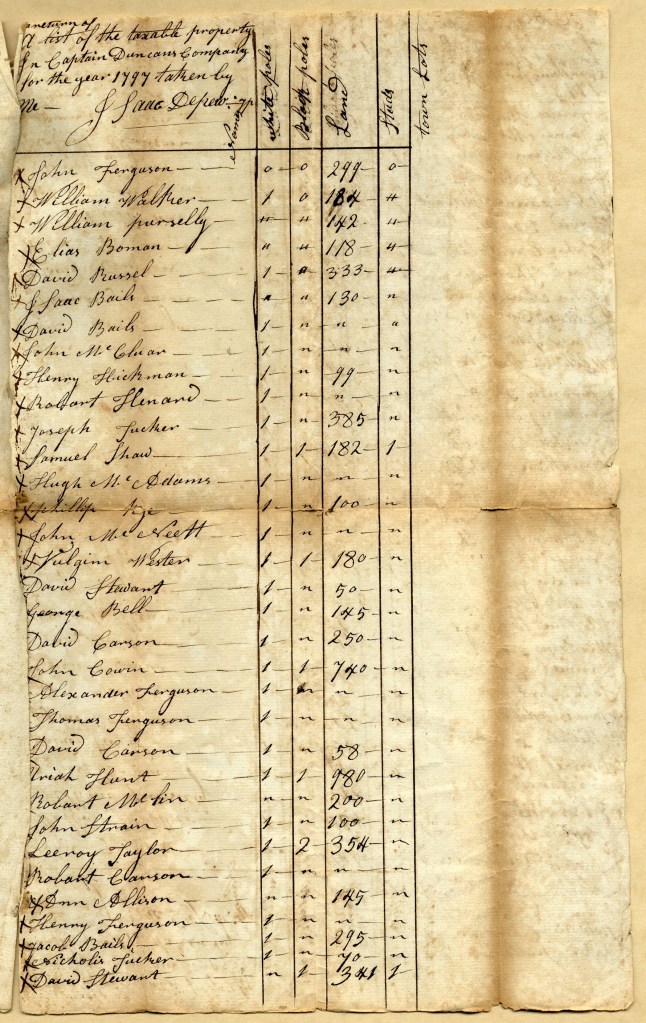 a return of
A list of the taxable property
In Captain Duncans Company
for the year 1797 taken by
Me — Isaac Depew
Names white poles Black poles Land Studs town Lots
x John Ferguson — 0 — 0 — 299 — 0
x William Walker — 1 0 184 — "
x William purselly — " " 142 — "
x Elias Boman — " " 118 — "
x David Russel — 1 — " — 333 — "
x Isaac Bails — " " 130 — n
x David Bails — 1 — n — n — a
x John McCluar — 1 — n — n — n
x Henry Hickman — 1 — n — 99 — n
x Robart Henard — 1 — n — n — n
x Joseph Tucker — 1 — n — 385 — n
x Samuel Shaw — 1 — 1 — 182 — 1
x Hugh McAdams — 1 — n — n — n
x phillip — 1 — n — 100 — n
x John — 1 — n — n — n
x Fulgim Wester — 1 — 1 — 180 — n
David Stewart — 1 — n — 50 — n
George Bell — 1 — n — 145 — n
David Carson — 1 — n — 250 — n
John Cowin — 1 — 1 — 740 — n
Alexander Ferguson — 1 — n — n — n
Thomas Ferguson — 1 — n — n — n
David Carson — 1 — n — 58 — n
Uriah Hunt — 1 — 1 — 980 — n
Robart Mclin — n — n — 200 — n
John Strain — 1 — n — 100 — n
Leeroy Taylor — 1 — 2 — 354 — n
Robart Carson — 1 — n — n — n
x Ann Allison — n — n — 145 — n
x Henry Ferguson — 1 — n — n — n
x Jacob Bails — 1 — n — 295 — n
x Nicholis Tucker — 1 — n — 70 — n
x David Stewart — n — 1 — 341 1